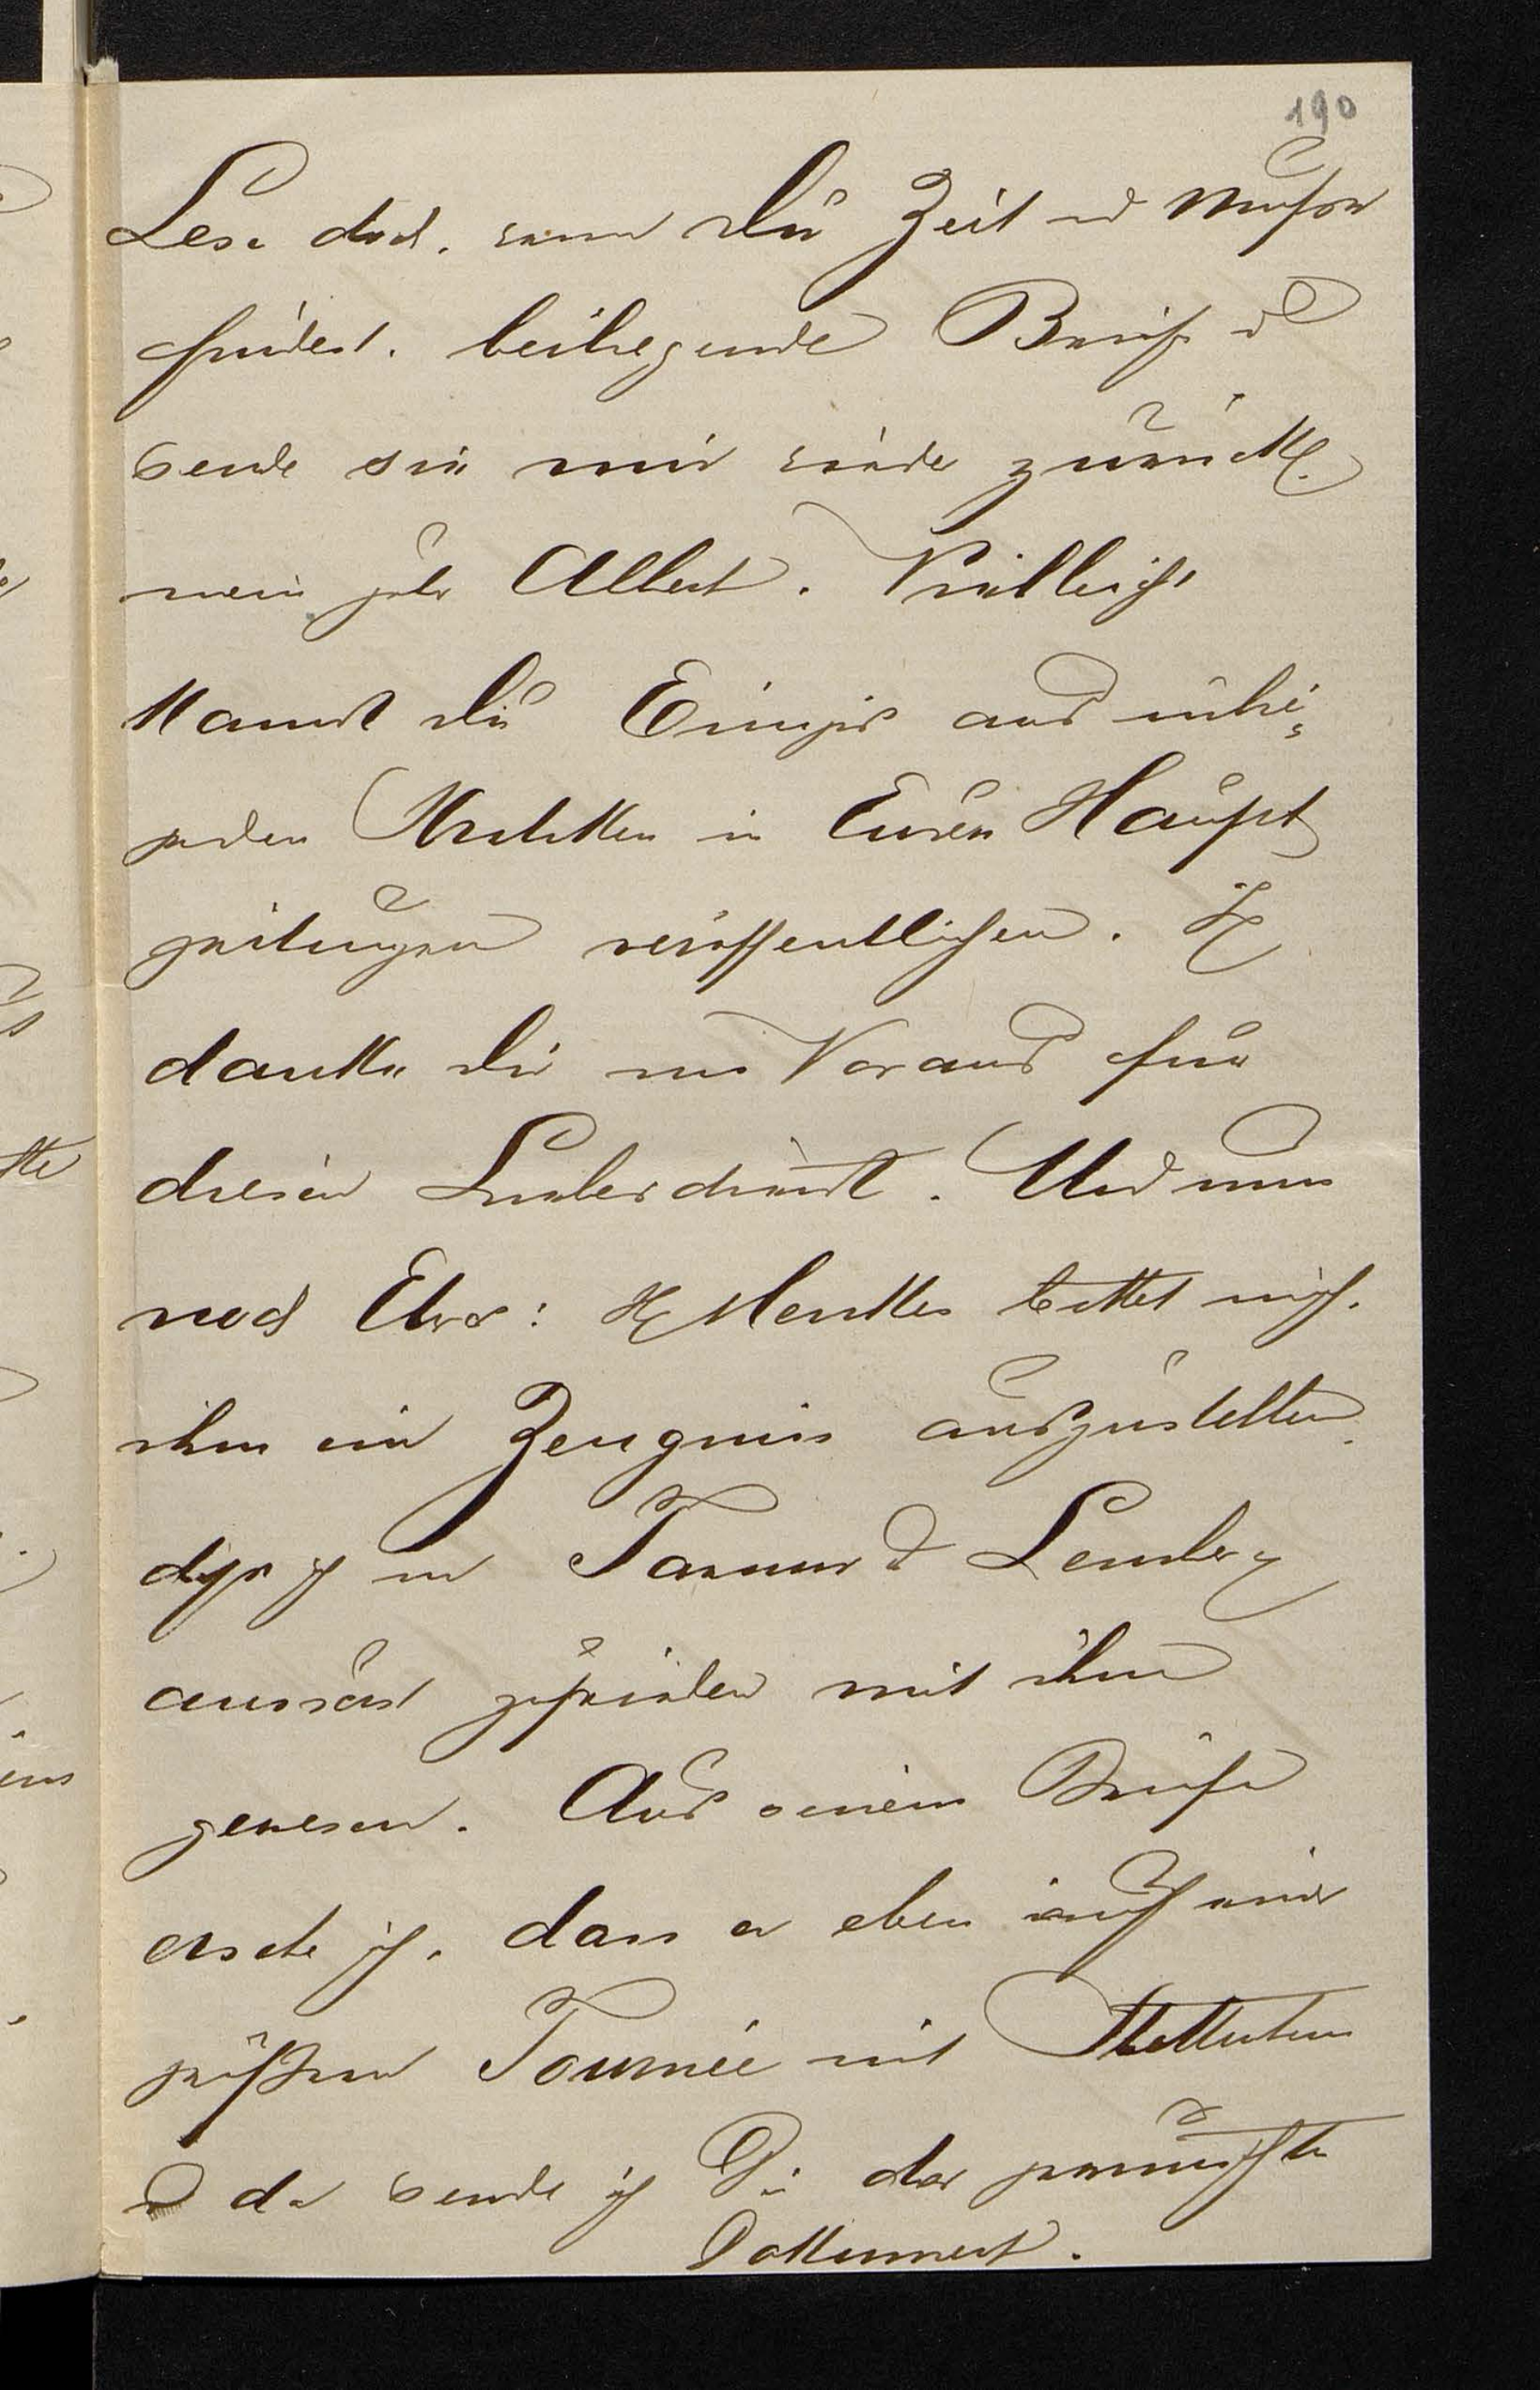 190
Lese doch, wenn Du Zeit und Muße
findest, beiliegende Briefe u
sende sie mir wieder zurück,
mein guter Albert. Vielleicht
kannst Du Einiges aus
Kritiken in Euren Haupt
zeitungen veröffentlichen. Ich
danke Dir im Voraus für
diesen Liebesdienst. Und nun
noch Etwas: H Menkes bittet mich,
ihm ein Zeugnis auszustellen,
daß ich in Tarnow & Lemberg
äusserst zufrieden mit ihm
gewesen. Aus seinem Briefe
ersehe ich, dass er eben auf einer
größeren Tournée mit
u da sende ich Dir das gewünschte
Dokument.